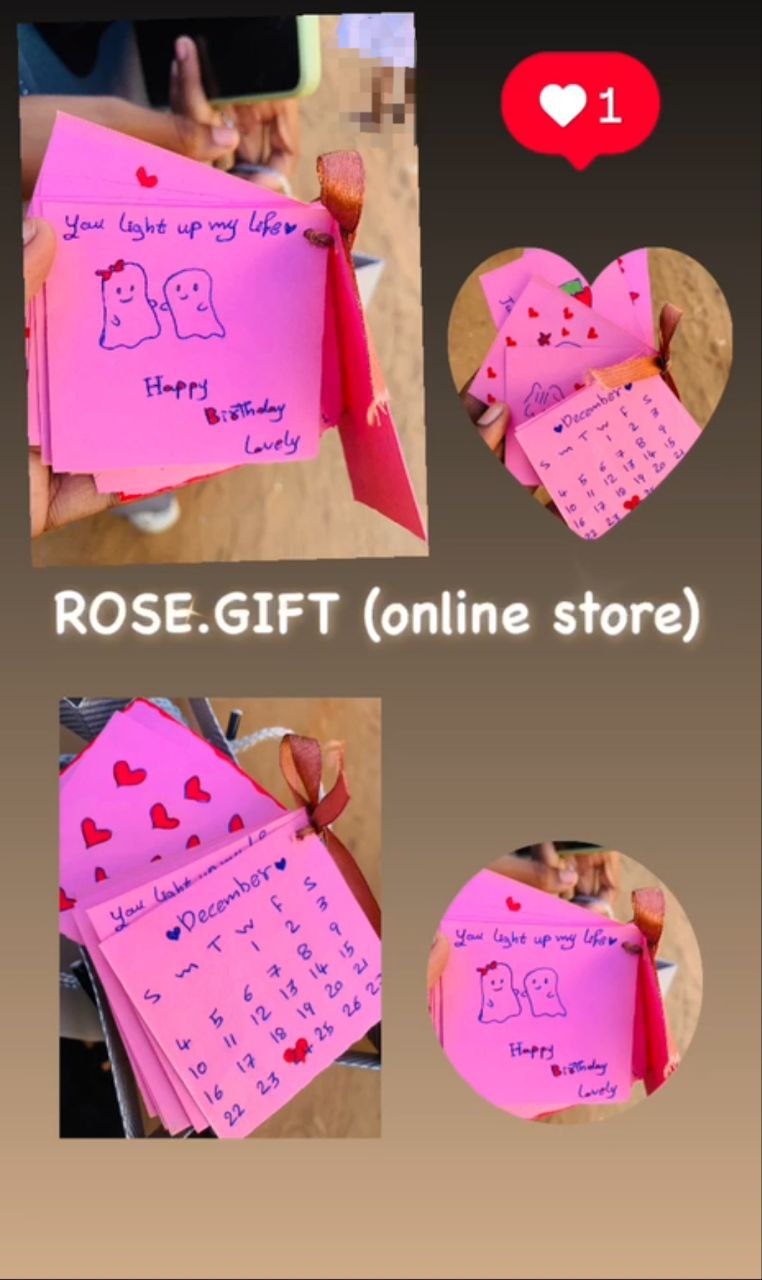 You light up my life
Happy
Birthday
Lovely
1
December
S m T w f S
1 2 3
4 5 6 7 8 9
10 11 12 13 14 15
16 17 18 19 20 21
22 23
ROSE.GIFT (online store)
You light up my life
December
S m T w f S
1 2 3
4 5 6 7 8 9
10 11 12 13 14 15
16 17 18 19 20 21
22 23 25 26 27
You light up my life
Happy
Birthday
Lovely